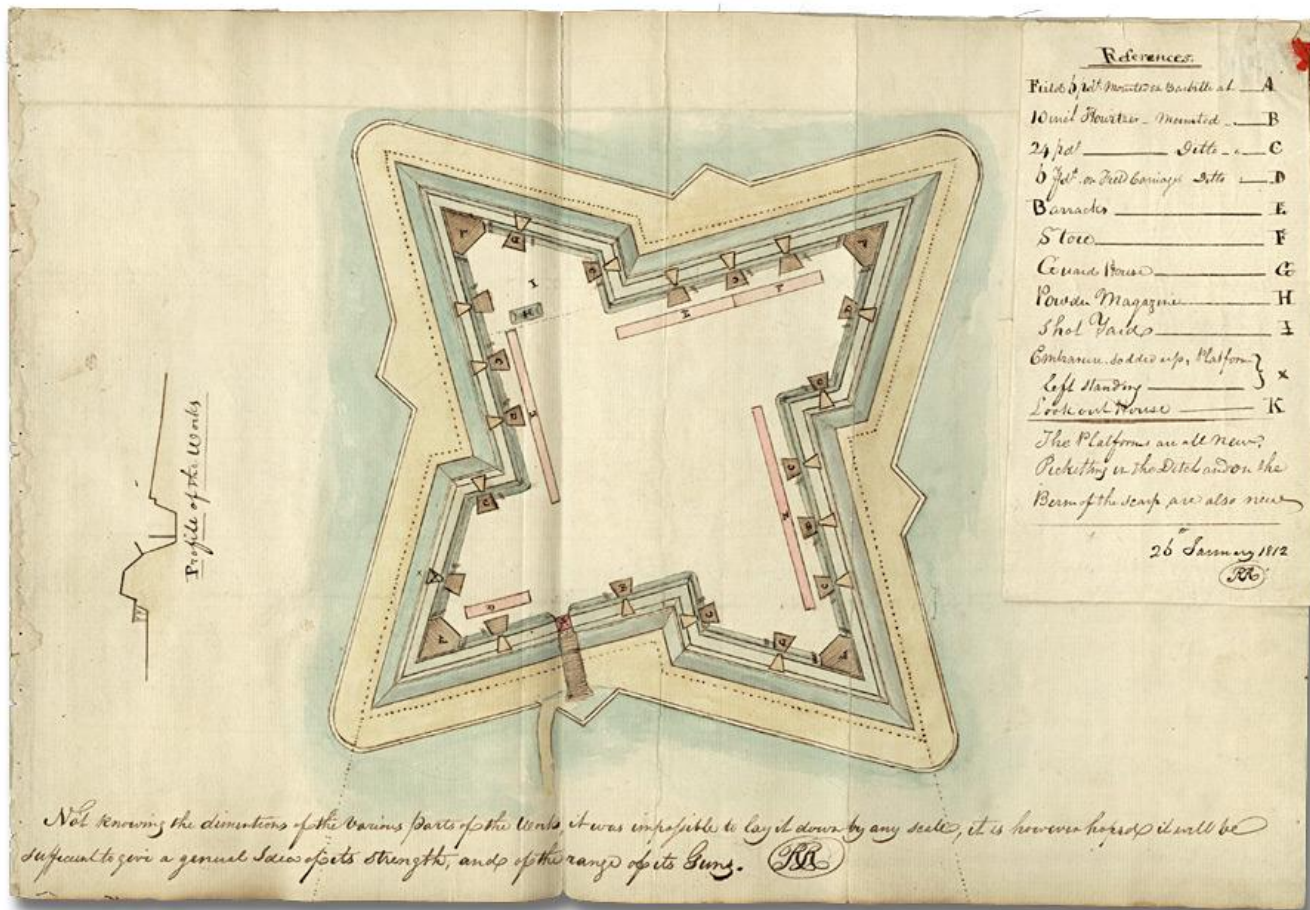 References.
Field 6 pdr Mounted en Barbette at A
10 inch Howitzer - Mounted - B
24 pdr Ditto - C
6 pdr on Field Carriage Ditto D
Barracks E
Store F
Guard House G
Powder Magazine H
Shot Yard I
Embrasure sodded up, Platform
left standing } X
Look out House K
The Platforms are all new,
Picketting in the Ditch and on the
Berm of the scarp are also new
26th January 1812
RR
Profile of the Works
Not knowing the dimentions of the various Parts of the Work, it was impossible to lay it down by any scale, it is however hoped it will be
sufficient to give a general Idea of its strength, and of the range of its Guns. RR